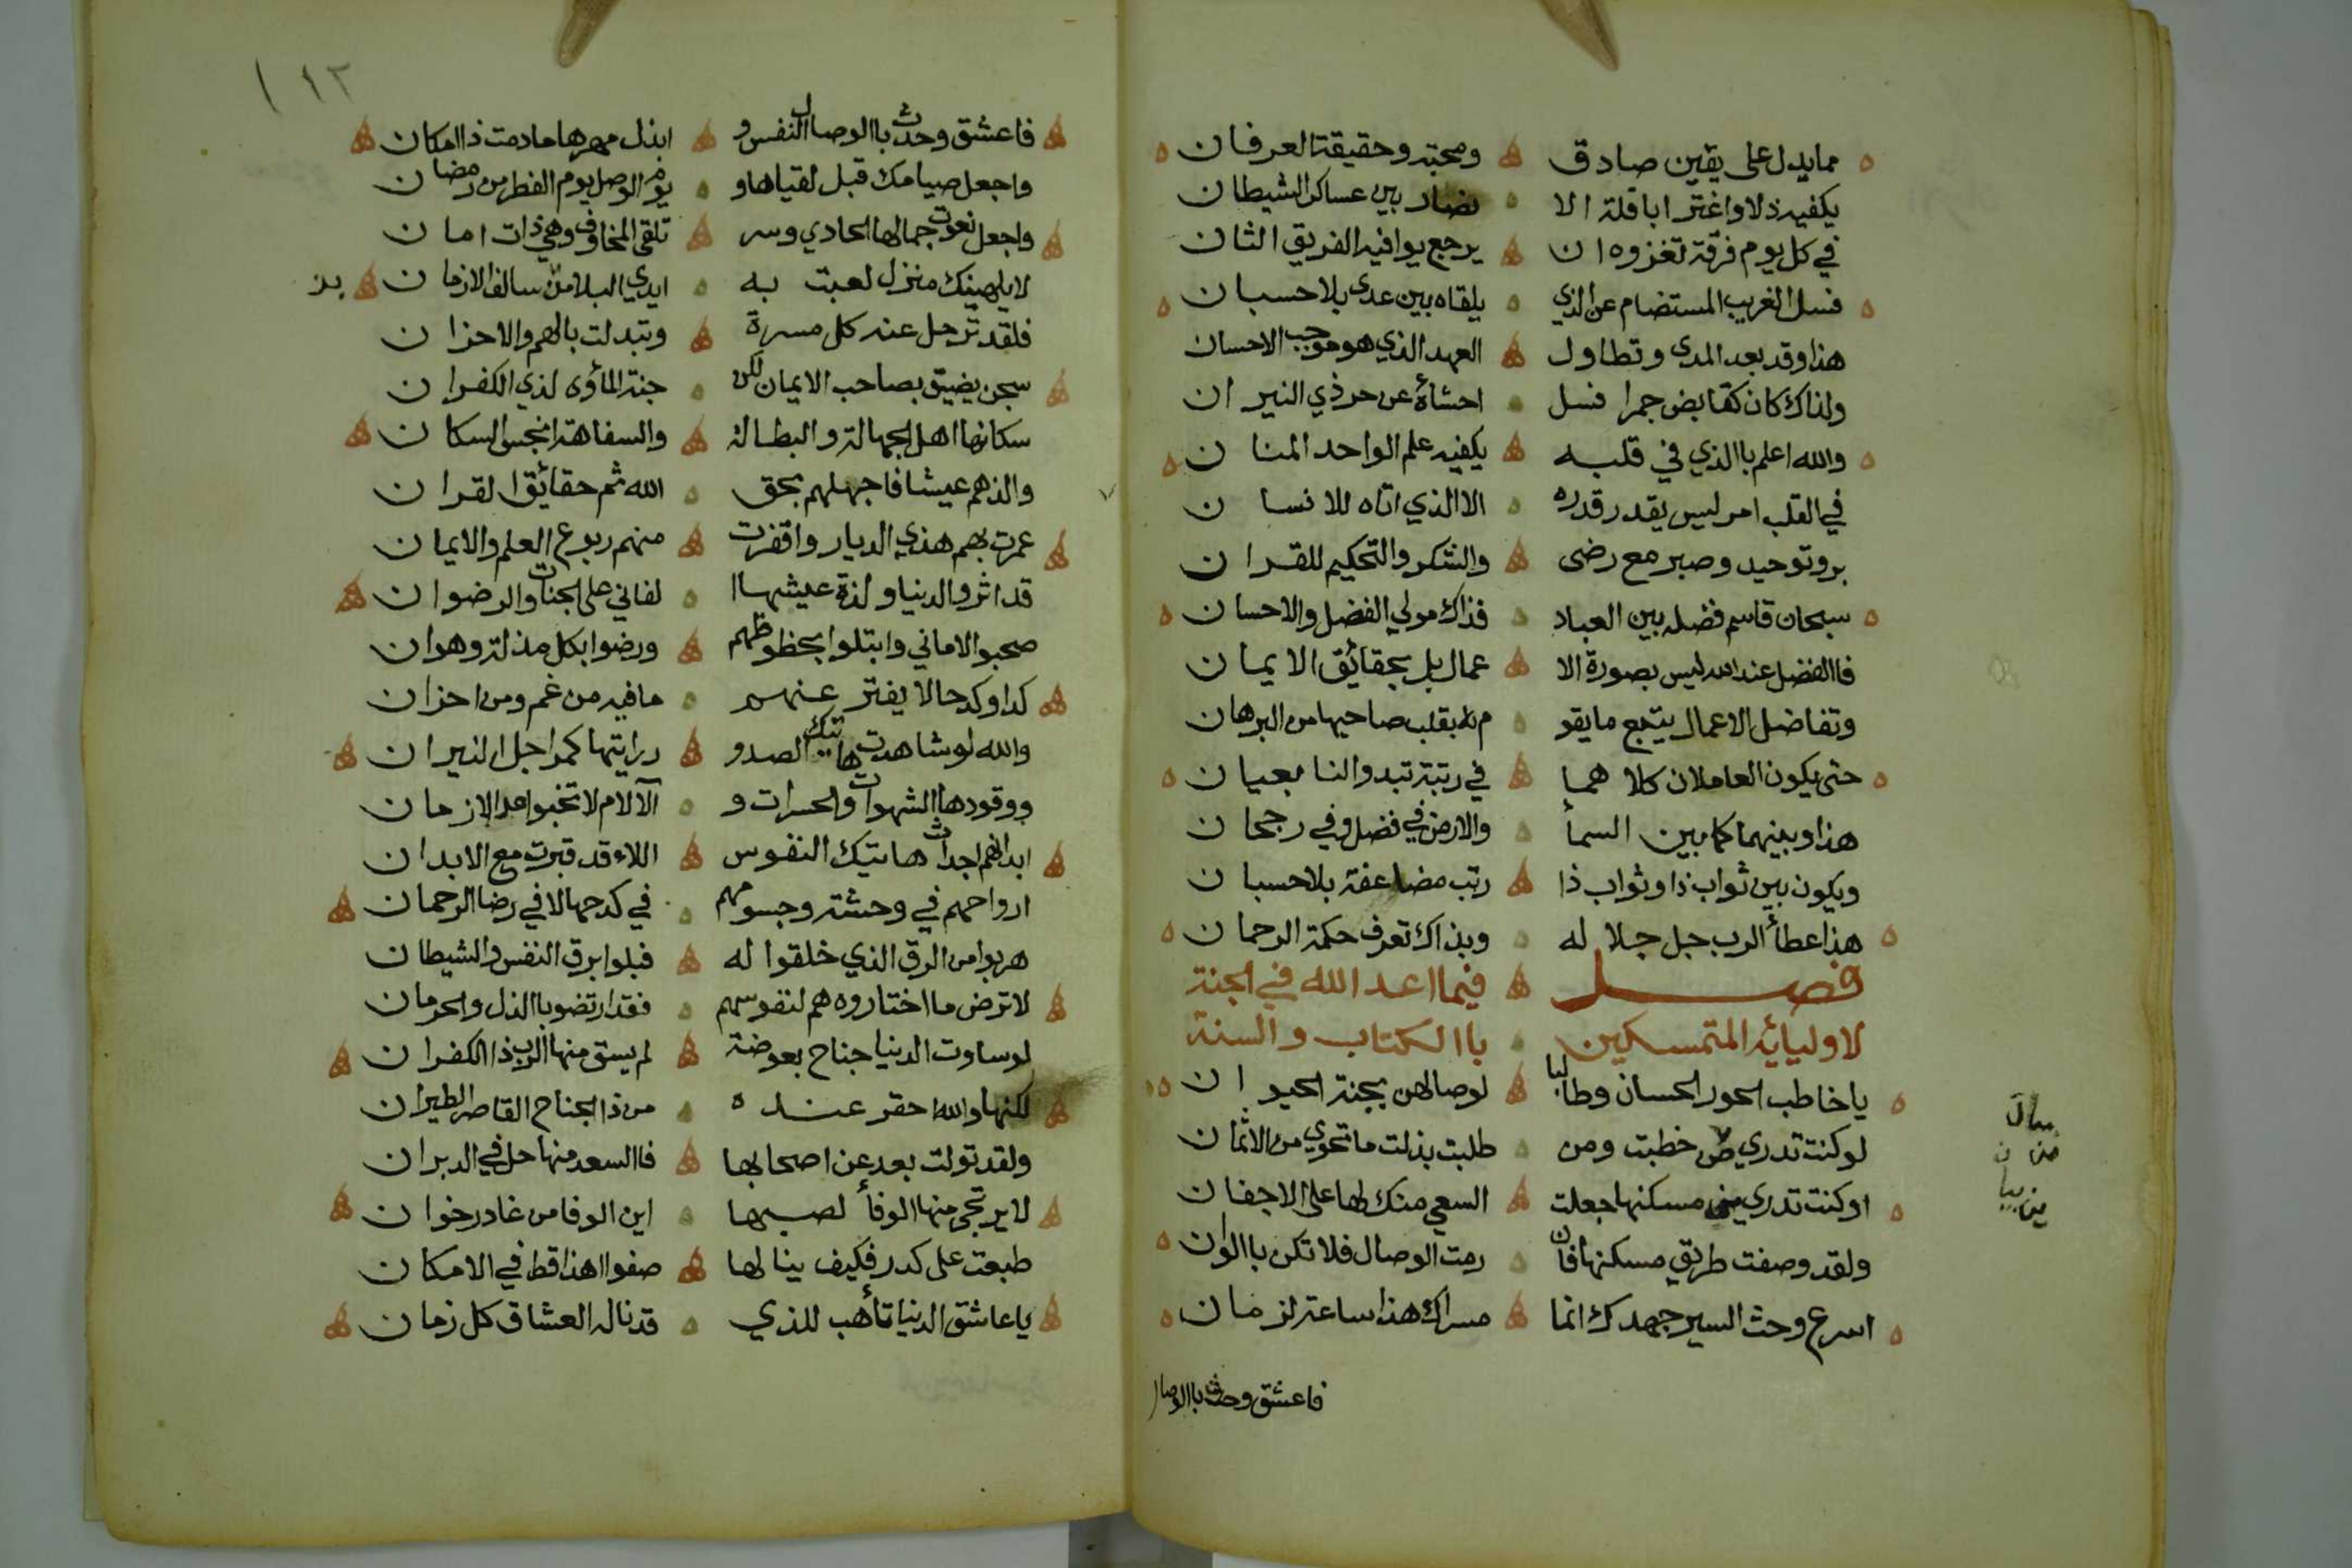 مما يدل على يقين صادق ومحبة وحقيقة العرفان
يكفيه ذلا واغترابا قلة الا نصار بين عساكر الشيطان
في كل يوم فرقة تغزوه ان يرجع يوافيه الفريق الثان
فسل الغريب المستضام عن الذي يلقاه بين عدى بلا حسبان
هذا وقد بعد المدى وتطاول العهد الذي هو موجب الاحسان
ولذاك كان كقابض جمرا فسل احشاءه عن حر ذي النيران
والله اعلم باالذي في قلبه يكفيه علم الواحد المنان
في القلب امر ليس يقدر قدره الا الذي اتاه للانسان
بر وتوحيد وصبر مع رضى والشكر والتحكيم للقران
سبحان قاسم فضله بين العباد فذاك مولي الفضل والاحسان
فاالفضل عند الله ليس بصورة الا عمال بل بحقائق الايمان
وتفاضل الاعمال يتبع ما يقو م له بقلب صاحبها من البرهان
حتى يكون العاملان كلا هما في رتبة تبدو النا بعيان
هذا وبينهما كما بين السمأ والارض في فضل وفي رجحان
ويكون بين ثواب ذا وثواب ذا رتب مضاعفة بلا حسبان
هذا عطأ الرب جل جلا له وبذاك تعرف حكمة الرحمان
فصل فيما اعد الله في الجنة
لاوليائه المتمسكين باالكتاب والسنة
يا خاطب الحور الحسان وطالبا لوصالهن بجنة الحيوان
لو كنت تدري من خطبت ومن طلبت بذلت ما تحوي من الاثمان
او كنت تدري مسكنها جعلت السعي منك لها على الاجفان
ولقد وصفت طريق مسكنها فان رمت الوصال فلا تكن باالوان
اسرع وحث السير جهدك انما مسراك هذا ساعة لزمان
فاعشق وحدث باالوصال
١١٢
فاعشق وحدث باالوصال النفس و ابذل مهرها ما دمت ذا امكان
واجعل صيامك قبل لقياها و يوم الوصل يوم الفطر من رمضان
واجعل نعوت جمالها الحادي وسر تلقى المخاوف وهي ذات امان
لا يلهينك منزل لعبت به ايدي البلا من سالف الازمان
فلقد ترحل عنه كل مسرة وتبدلت بالهم والاحزان
سجن يضيق بصاحب الايمان لكن جنة المأوى لذي الكفران
سكانها اهل الجهالة والبطالة والسفاهة انجس السكان
والذهم عيشا فاجهلهم بحق الله ثم حقائق القران
عمرت بهم هذي الديار واقفرت منهم ربوع العلم والايمان
قد اثروا الدنيا ولذة عيشها ا لفاني على الجنات والرضوان
صحبوا الاماني وابتلوا بحظوظهم ورضوا بكل مذلة وهوان
كدا وكدحا لا يفتر عنهم ما فيه من غم ومن احزان
والله لو شاهدت هاتيك الصدو ر رايتها كمراجل النيران
ووقودها الشهوات والحسرات و الآلام لا تخبوا مدا الازمان
ابدانهم اجداث هاتيك النفوس اللاء قد قبرت مع الابدان
ارواحهم في وحشة وجسومهم في كدحها لا في رضا الرحمان
هربوا من الرق الذي خلقوا له فبلوا برق النفس والشيطان
لا ترض ما اختاروه هم لنفوسهم فقد ارتضو باالذل والحرمان
لو ساوت الدنيا جناح بعوضة لم يسق منها الرب ذا الكفران
لكنها والله احقر عنده من ذا الجناح القاصر الطيران
ولقد تولت بعد عن اصحابها فاالسعد منها حل في الدبران
لا يرتجى منها الوفأ لصبها اين الوفا من غادر خوان
طبعت على كدر فكيف ينالها صفوا اهذا قط في الامكان
يا عاشق الدنيا تأهب للذي قد ناله العشاق كل زمان